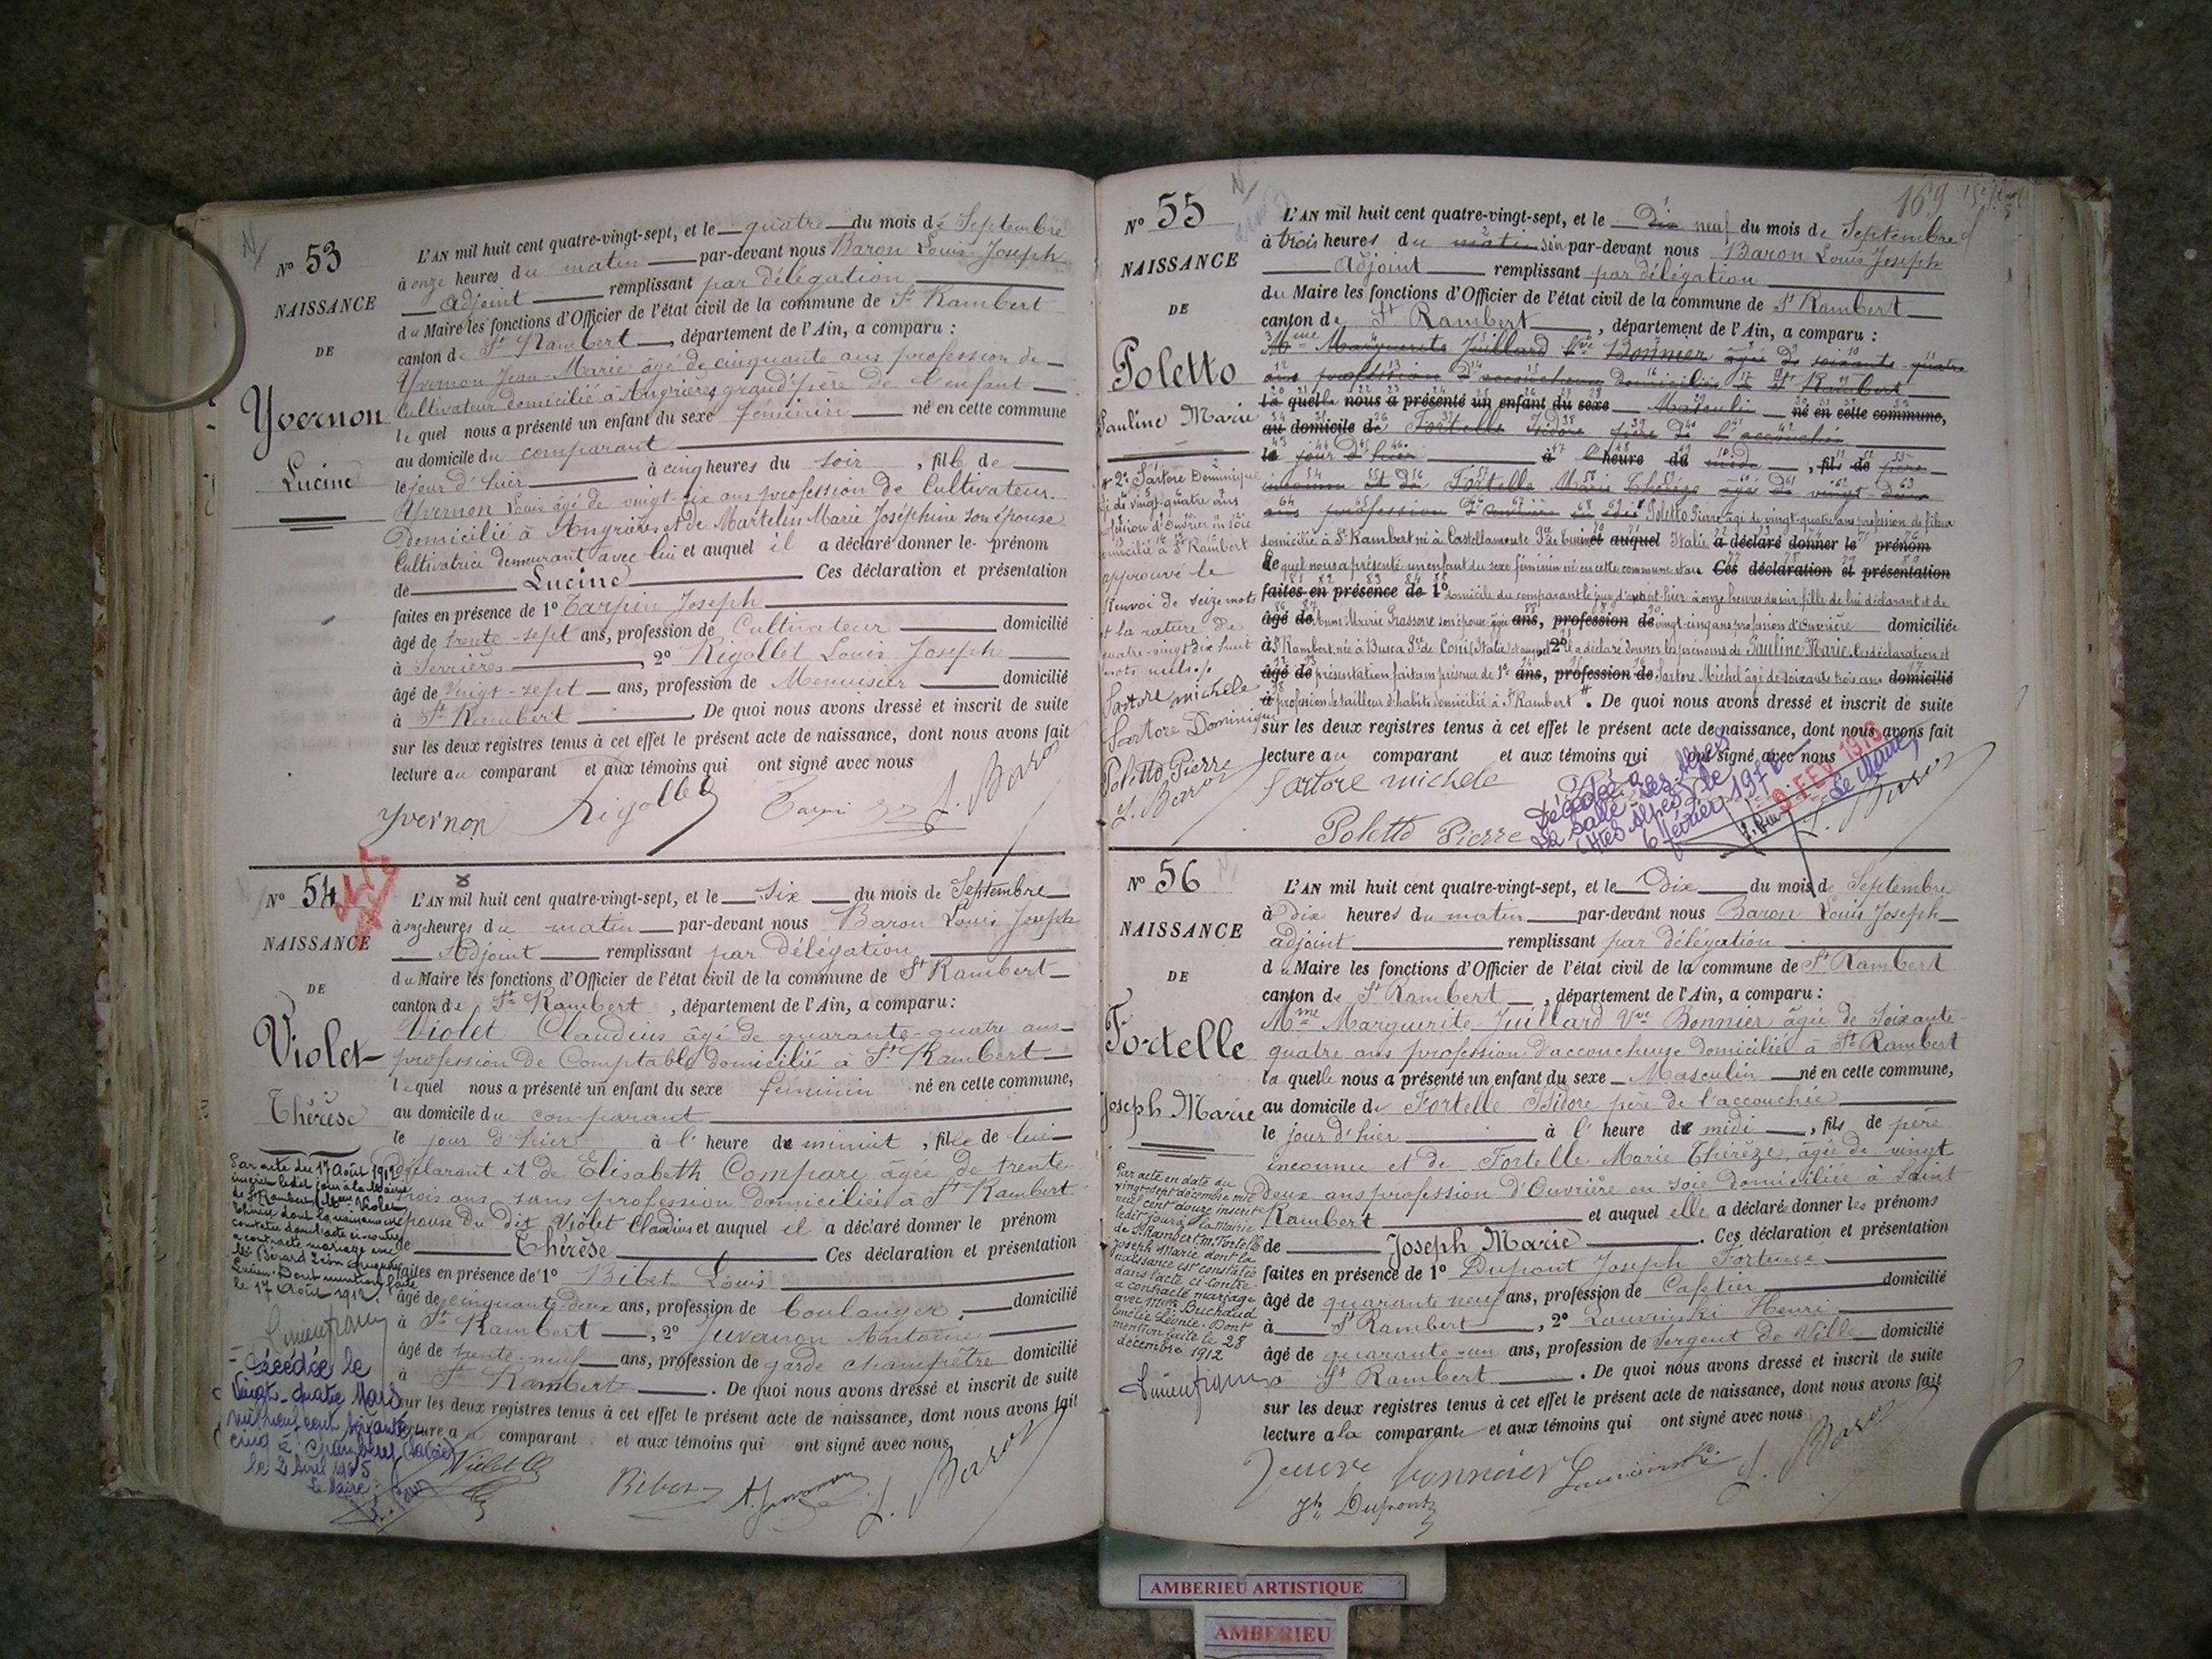 N° 53
NAISSANCE
DE
Yvernon
Lucine
L'AN mil huit cent quatre-vingt-sept, et le quatre du mois de Septembre
à onze heures du matin par-devant nous Baron Louis Joseph
Adjoint remplissant par délégation
du Maire les fonctions d'Officier de l'état civil de la commune de St Rambert
canton de St Rambert, département de l'Ain, a comparu :
Yvernon Jean-Marie âgé de cinquante ans profession de
Cultivateur domicilié à Angrières grand'père de l'enfant
lequel nous a présenté un enfant du sexe féminin né en cette commune
au domicile du comparant
le jour d'hier à cinq heures du soir, fille de
Yvernon Louis âgé de vingt-six ans profession de Cultivateur
Domicilié à Angrières et de Martelin Marie Joséphine son épouse
Cultivatrice demeurant avec lui et auquel il a déclaré donner le prénom
de Lucine Ces déclaration et présentation
faites en présence de 1° Tarpin Joseph
âgé de trente-sept ans, profession de Cultivateur domicilié
à Serrières, 2° Rigollet Louis Joseph
âgé de vingt-sept ans, profession de Menuisier domicilié
à St Rambert. De quoi nous avons dressé et inscrit de suite
sur les deux registres tenus à cet effet le présent acte de naissance, dont nous avons fait
lecture au comparant et aux témoins qui ont signé avec nous
Yvernon Rigollet Tarpin L. Baron
N° 54
NAISSANCE
DE
Violet
Thérèse
L'AN mil huit cent quatre-vingt-sept, et le six du mois de Septembre
à onze heures du matin par-devant nous Baron Louis Joseph
Adjoint remplissant par délégation
du Maire les fonctions d'Officier de l'état civil de la commune de St Rambert
canton de St Rambert, département de l'Ain, a comparu :
Violet Claudius âgé de quarante-quatre ans
profession de Comptable domicilié à St Rambert
lequel nous a présenté un enfant du sexe féminin né en cette commune,
au domicile du comparant
le jour d'hier à l'heure de minuit, fille de lui
déclarant et de Elisabeth Compare âgée de trente
trois ans sans profession domiciliée à St Rambert
épouse du dit Violet Claudius et auquel il a déclaré donner le prénom
de Thérèse Ces déclaration et présentation
faites en présence de 1° Bibet Louis
âgé de cinquante-deux ans, profession de boulanger domicilié
à St Rambert, 2° Juvanon Antoine
âgé de trente-neuf ans, profession de garde champêtre domicilié
à St Rambert. De quoi nous avons dressé et inscrit de suite
sur les deux registres tenus à cet effet le présent acte de naissance, dont nous avons fait
lecture au comparant et aux témoins qui ont signé avec nous
Par acte du 17 Août 1912
inscrit ledit jour à la Mairie
de St Rambert Violet
Thérèse dont la naissance est
constatée dans l'acte ci-contre
a contracté mariage avec
Mr Bérard Léon
Dont mention faite
le 17 Août 1912.
Décédée le
Vingt-quatre Mars
mil neuf cent soixante
cinq à Chambéry (Savoie)
le 2 Avril 1965
Le Maire
Violet Cl Bibet A. Juvanon L. Baron
169
N° 55
NAISSANCE
DE
Poletto
Pauline Marie
L'AN mil huit cent quatre-vingt-sept, et le Dix neuf du mois de Septembre
à trois heures du matin soir par-devant nous Baron Louis Joseph
Adjoint remplissant par délégation
du Maire les fonctions d'Officier de l'état civil de la commune de St Rambert
canton de St Rambert, département de l'Ain, a comparu :
Mme Marguerite Juillard Vve Bonnier âgée de soixante-quatre
ans profession d'accoucheuse domiciliée à St Rambert
la quelle nous a présenté un enfant du sexe Masculin né en cette commune,
au domicile de Fortelle Isidore père de l'accouchée
le jour d'hier à l'heure de midi, fils de père
inconnu et de Fortelle Marie Thérèze âgée de vingt-deux
ans profession d'ouvrière Poletto Pierre âgé de vingt-quatre ans profession de fileur
domicilié à St Rambert né à Castellamonte Pce de Turin et auquel Italie a déclaré donner le prénom
Lequel nous a présenté un enfant du sexe féminin né en cette commune Ces déclaration et présentation
faites en présence de 1° domicile du comparant le jour d'avant-hier à onze heures du soir fille de lui déclarant et de
âgé de Anne Marie Grassone son épouse âgée ans, profession de vingt-cinq ans profession d'Ouvrière domiciliée
à St Rambert, née à Busca Pce de Coni (Italie) et auquel 2° il a déclaré donner les prénoms de Pauline Marie. Ces déclaration et
âgé de présentation faites en présence de 1° ans, profession de Sartore Michel âgé de soixante trois ans domicilié
à profession de tailleur d'habits domicilié à St Rambert. De quoi nous avons dressé et inscrit de suite
sur les deux registres tenus à cet effet le présent acte de naissance, dont nous avons fait
lecture au comparant et aux témoins qui ont signé avec nous
2° Sartore Dominique
âgé de vingt-quatre ans
profession d'Ouvrier en soie
domicilié à St Rambert
approuvé le
renvoi de seize mots
et la rature de
quatre-vingt dix huit
mots nuls
Sartore michele
Sartore Dominique
Poletto Pierre
L. Baron
Sartore michele
Poletto Pierre
Décédée à
La Salle-les-Alpes
(Htes Alpes) le
6 février 197
9 FEV 197
Le Maire,
N° 56
NAISSANCE
DE
Fortelle
Joseph Marie
L'AN mil huit cent quatre-vingt-sept, et le Dix du mois de Septembre
à Dix heures du matin par-devant nous Baron Louis Joseph
adjoint remplissant par délégation
du Maire les fonctions d'Officier de l'état civil de la commune de St Rambert
canton de St Rambert, département de l'Ain, a comparu :
Mme Marguerite Juillard Vve Bonnier âgée de soixante
quatre ans profession d'accoucheuse domiciliée à St Rambert
la quelle nous a présenté un enfant du sexe Masculin né en cette commune,
au domicile de Fortelle Isidore père de l'accouchée
le jour d'hier à l'heure de midi, fils de père
inconnu et de Fortelle Marie Thérèze, âgée de vingt
deux ans profession d'Ouvrière en soie domiciliée à Saint
Rambert et auquel elle a déclaré donner les prénoms
de Joseph Marie. Ces déclaration et présentation
faites en présence de 1° Dupont Joseph Fortuné
âgé de quarante neuf ans, profession de Cafetier domicilié
à St Rambert, 2° Louvinski Henri
âgé de quarante-un ans, profession de Sergent de Ville domicilié
à St Rambert. De quoi nous avons dressé et inscrit de suite
sur les deux registres tenus à cet effet le présent acte de naissance, dont nous avons fait
lecture à la comparante et aux témoins qui ont signé avec nous
Par acte en date du
vingt-sept décembre mil
neuf cent douze inscrit
ledit jour à la Mairie
de St Rambert, m. Fortelle
Joseph Marie dont la
naissance est constatée
dans l'acte ci-contre
a contracté mariage
avec Melle Buchaud
Emélie Léonie. Dont
mention faite le 28
décembre 1912
veuve bonnier L. Baron
Jh Dupont
AMBERIEU ARTISTIQUE
AMBERIEU